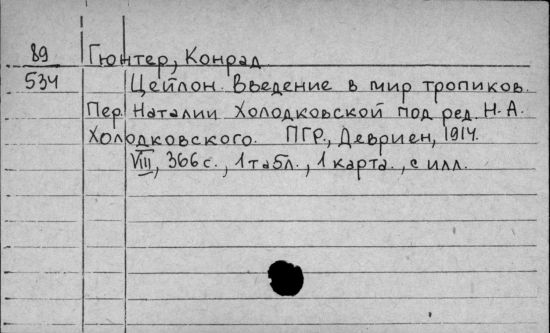 89 Гюнтер, Конрад
534 Цейлон. Введение в мир тропиков.
Пер. Наталии Холодковской под ред. Н.А.
Холодковского. ПГР., Девриен, 1914.
VIII, 366 с., 1 табл., 1 карта., с илл.